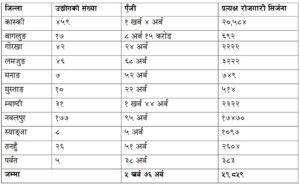 जिल्ला उद्योगको संख्या पुँजी प्रत्यक्ष रोजगारी सिर्जना
कास्की ४५९ १ खर्ब ४ अर्ब २०,५८४
बागलुङ १७ ८ अर्ब १५ करोड ६९२
गोरखा ४२ २४ अर्ब २२२२
लमजुङ ४६ ६८ अर्ब ३२२२
मनाङ ७ ५२ अर्ब ७४९
मुस्ताङ १० २२ अर्ब ५१४
म्याग्दी ३१ १ खर्ब ४४ अर्ब २३२२
नवलपुर १७७ ९५ अर्ब १७४७०
स्याङ्जा ८ ५ अर्ब १०९७
तनहुँ २६ ५१ अर्ब २६०४
पर्वत ५ ३८ अर्ब ३८३
जम्मा ५ खर्ब ७६ अर्ब ५१,८५९